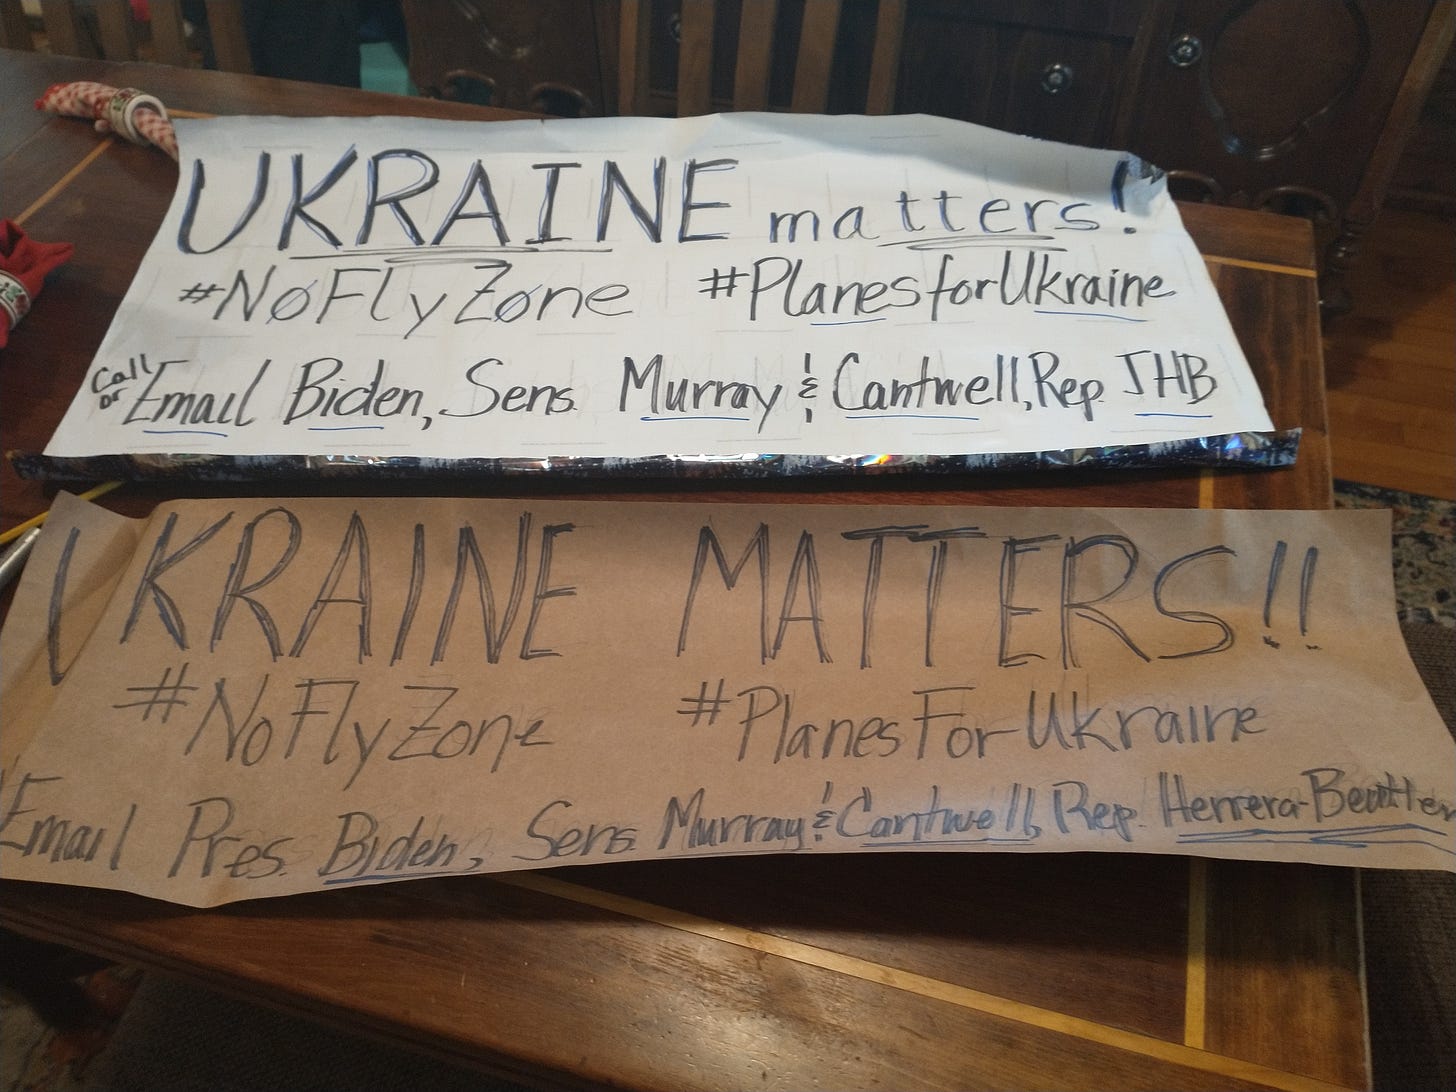 UKRAINE matters!
#NøFlyZøne #PlanesforUkraine
Call or Email Biden, Sens. Murray & Cantwell, Rep JHB
UKRAINE MATTERS!!
#NoFlyZone #PlanesForUkraine
Email Pres. Biden, Sens. Murray & Cantwell, Rep. Herrera-Beutler